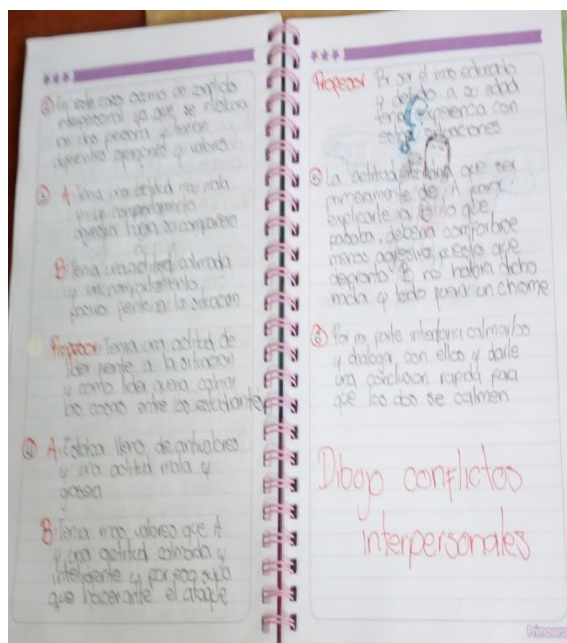 ② En este caso ocurrio un conflicto
interpersonal ya que se relaciona
con otra persona y tenian
diferentes opiniones y valores
③ A: Tenia una actitud muy mala
y un comportamiento
hacia su compañero
B: Tenia una actitud calmada
y un comportamiento
pasivo frente a la situacion
Profesor: Tenia una actitud de
lider frente a la situacion
y como lider queria calmar
las cosas entre los estudiantes
④ A: Estaba lleno de antivalores
y una actitud mala y
grosera
B: Tenia mas valores que A
y una actitud calmada y
inteligente y por eso supo
que hacer ante el ataque
Profesor: Por ser el mas educado
y debido a su edad
tenia experiencia con
estas situaciones
⑤ La actitud tendria que ser
primeramente de A para
explicarle a B lo que
pasaba, deberia comportarse
menos agresivo, puesto que
B no habia dicho
nada y todo fue un chisme
⑥ Por mi parte intentaria calmarlos
y dialogar con ellos y darle
una conclusion rapida para
que los dos se calmen
Dibujo conflictos
interpersonales
Primavera